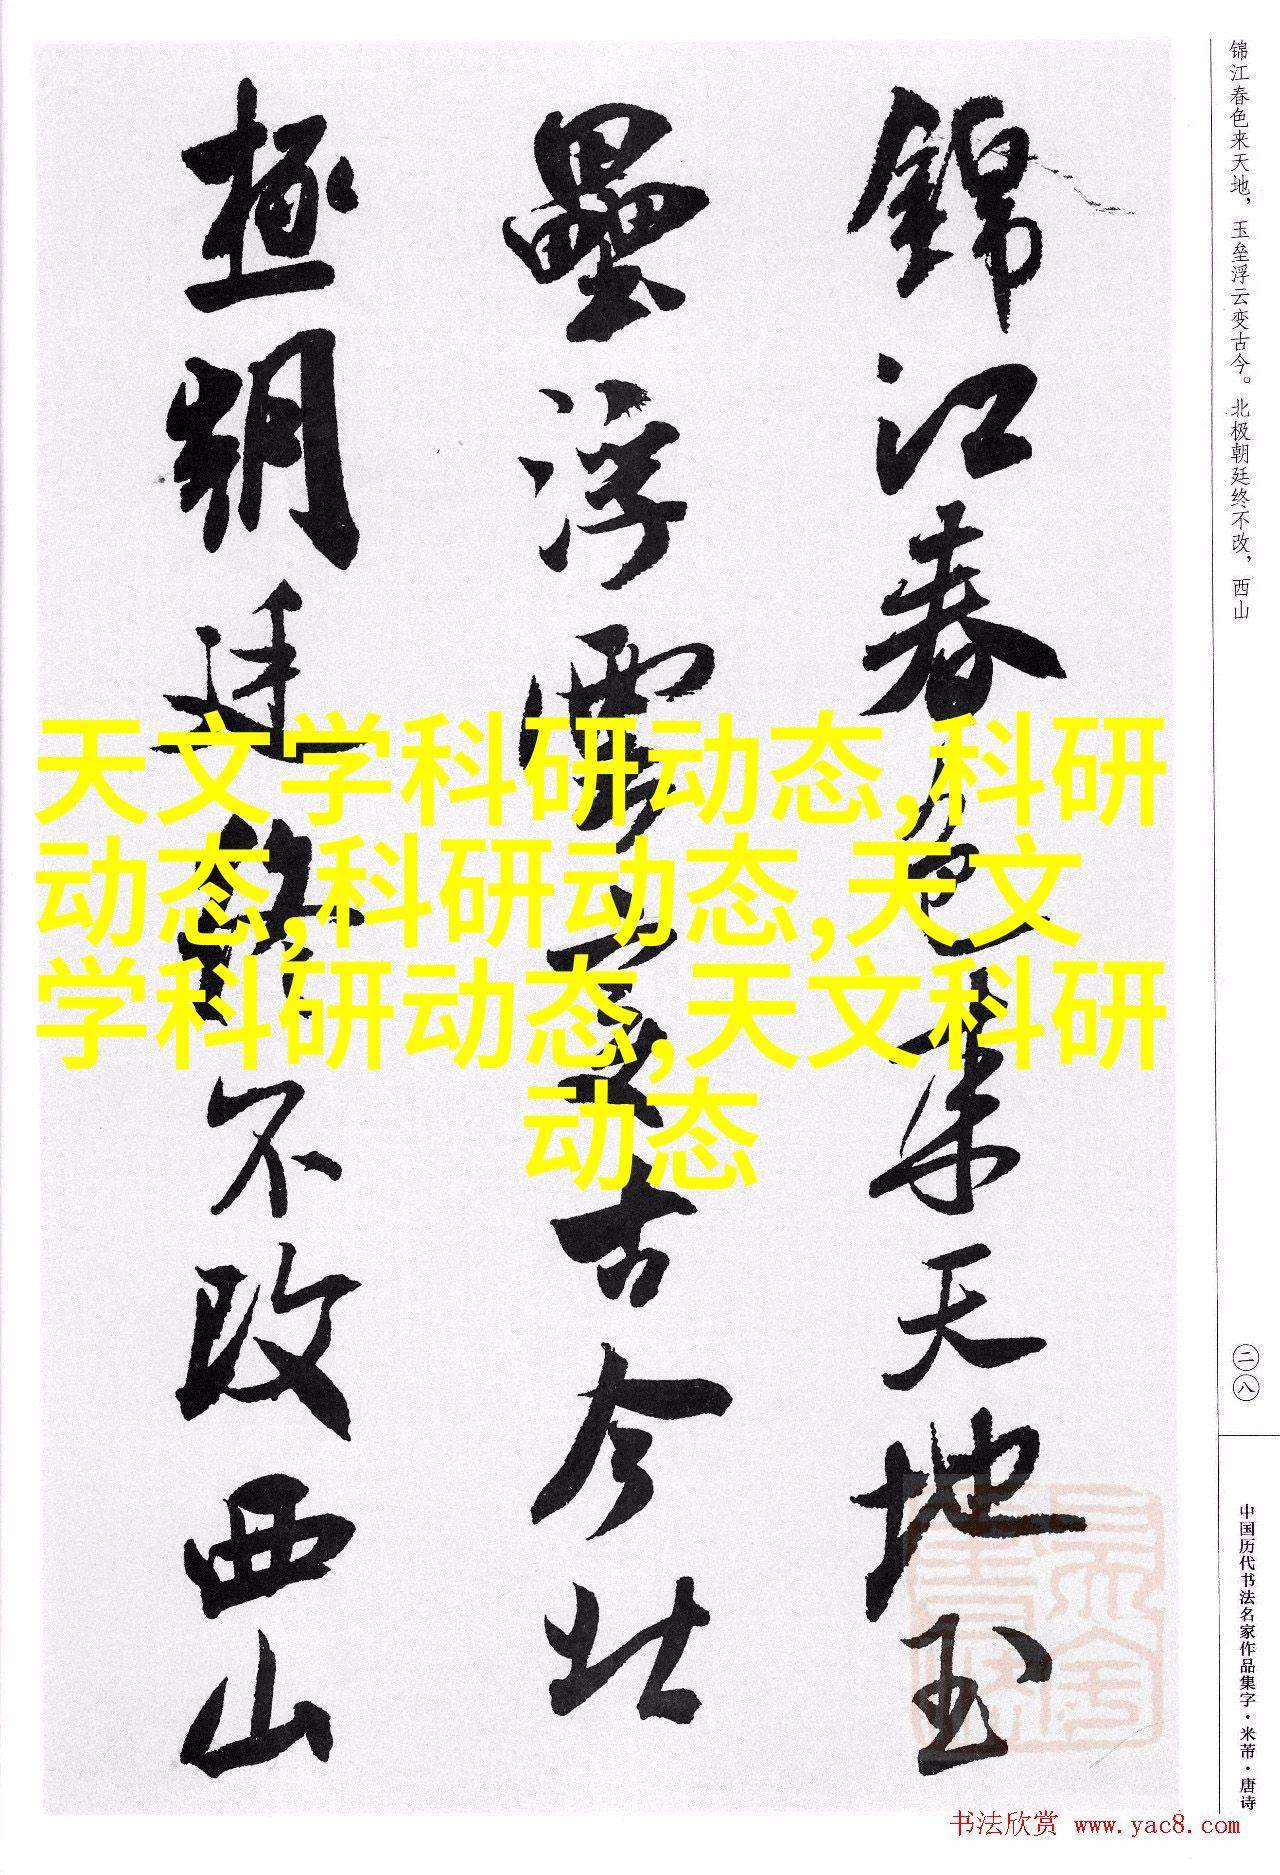 锦江春色来天地，玉垒浮云变古今。北极朝廷终不改，西山
錦江春色来天地玉
壘浮雲變古今北
極朝廷終不改西山
天文学科研动态,科研
动态,科研动态,天文
学科研动态,天文科研
动态
二八
中国历代书法名家作品集字·米芾·唐诗
书法欣赏 www.yac8.com